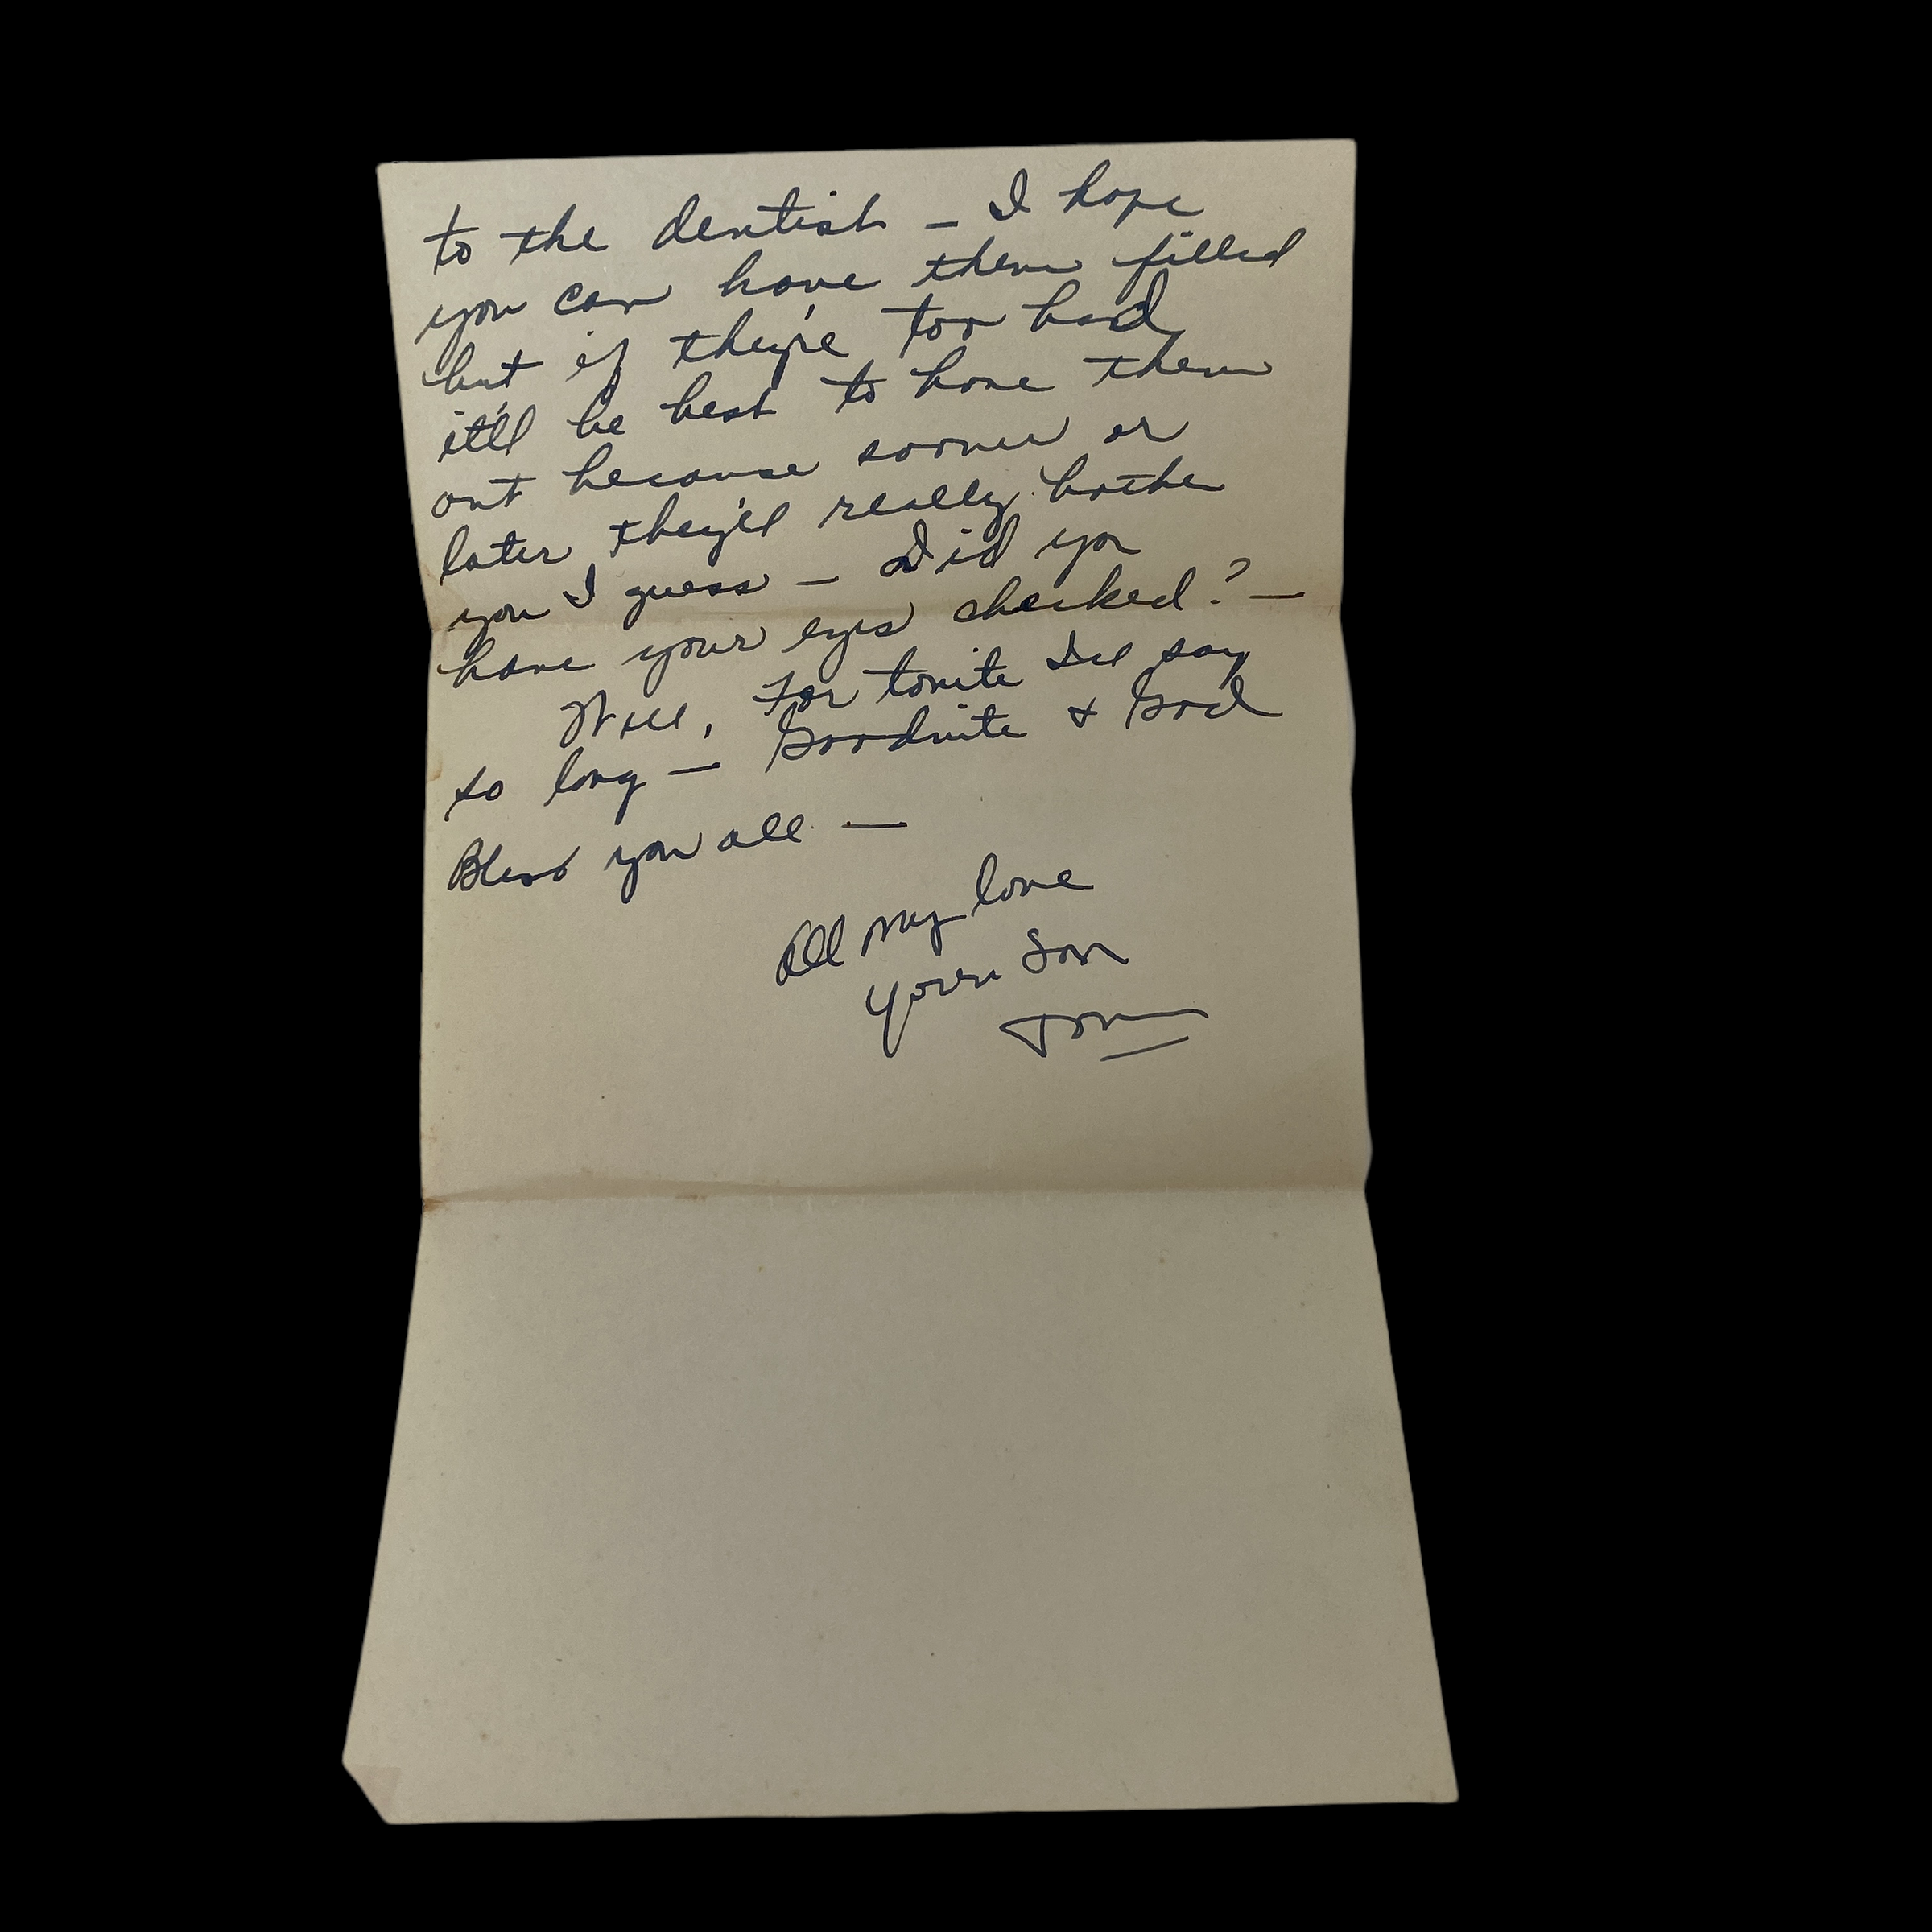 to the dentist — I hope
you can have them filled
but if they're too bad,
it'll be best to have them
out because sooner or
later they'll really bother
you I guess — Did you
have your eyes checked? —
Well, For tonite I'll say
so long — Goodnite & God
Bless you all —
All my love
Your Son
Tom